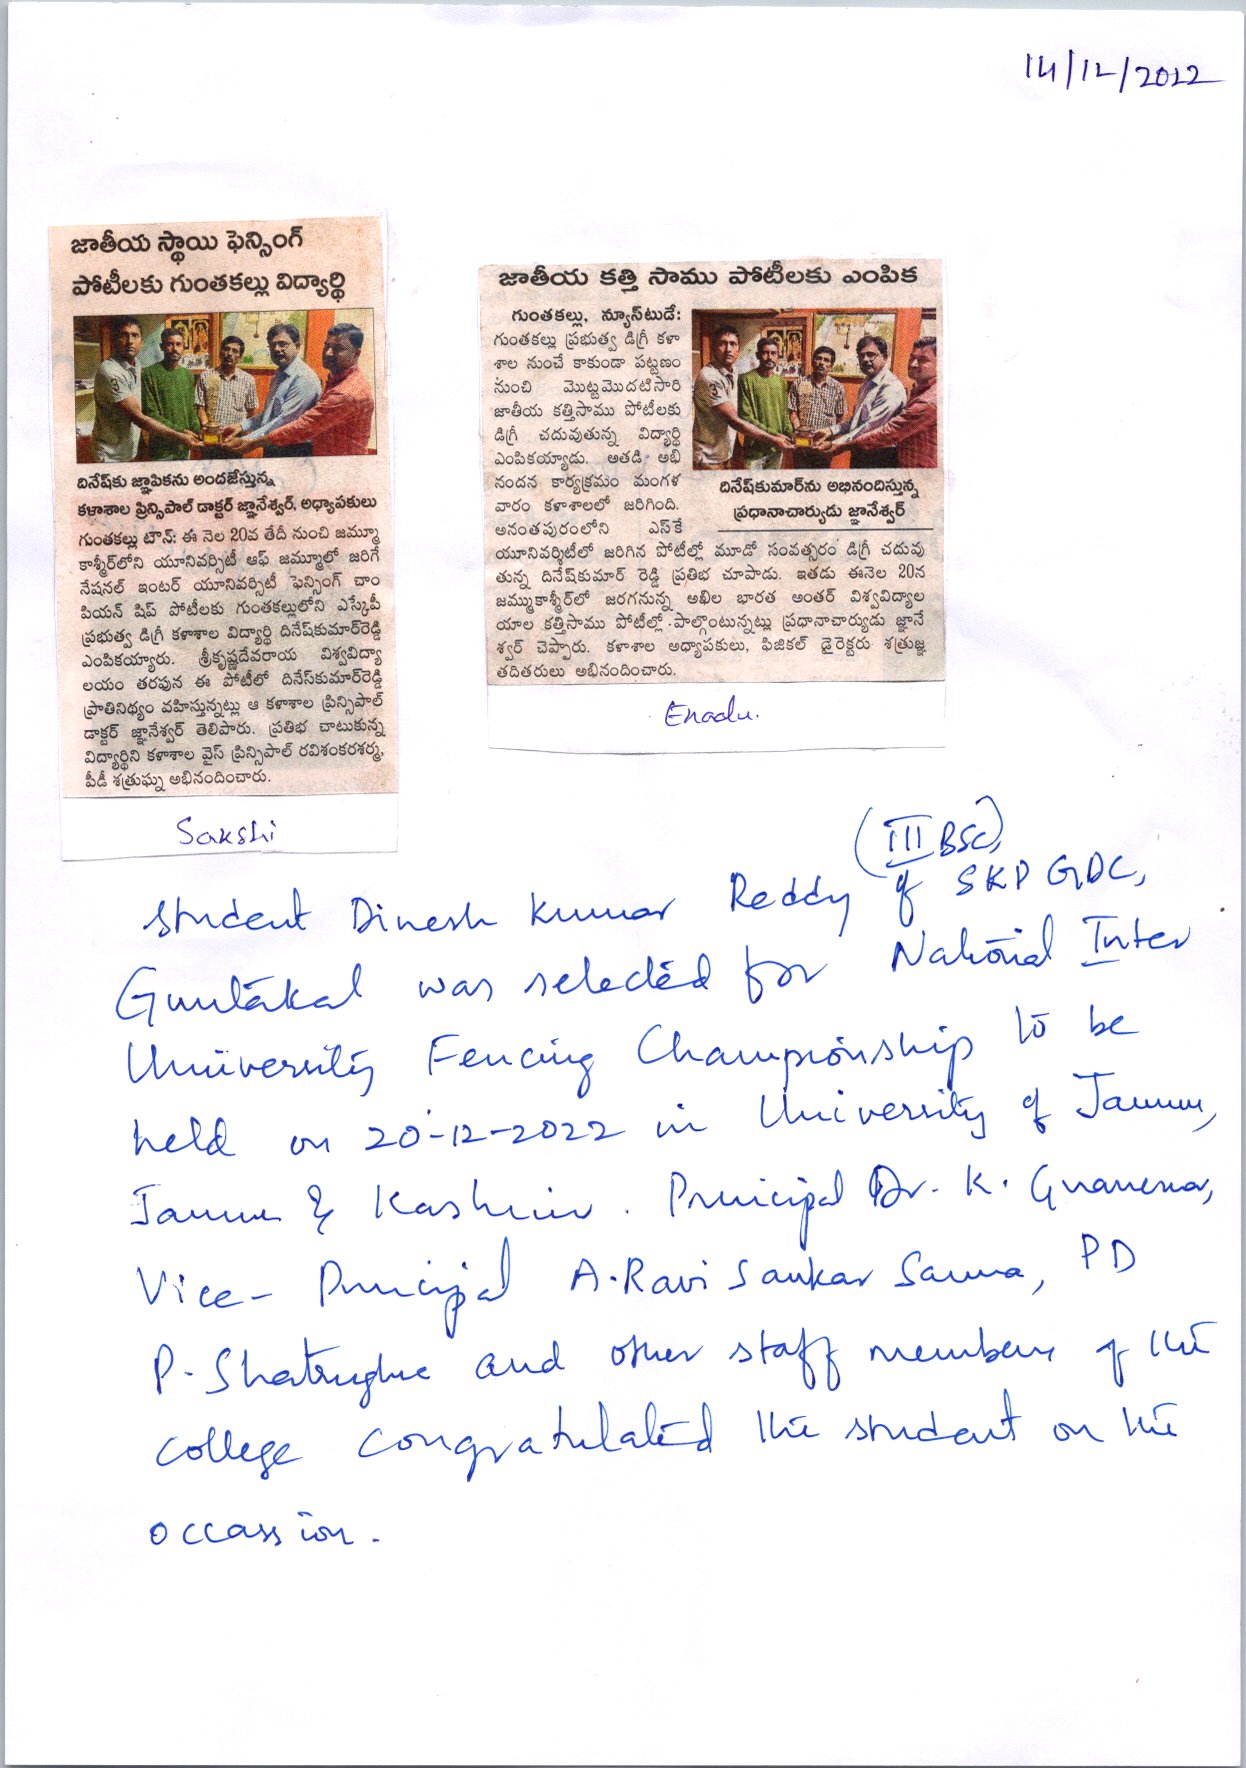 14/12/2022
జాతీయ స్థాయి ఫెన్సింగ్
పోటీలకు గుంతకల్లు విద్యార్థి
దినేష్‌కు జ్ఞాపికను అందజేస్తున్న
కళాశాల ప్రిన్సిపాల్ డాక్టర్ జ్ఞానేశ్వర్, అధ్యాపకులు
గుంతకల్లు టౌన్: ఈ నెల 20వ తేదీ నుంచి జమ్మూ
కాశ్మీర్‌లోని యూనివర్సిటీ ఆఫ్ జమ్మూలో జరిగే
నేషనల్ ఇంటర్ యూనివర్సిటీ ఫెన్సింగ్ చాం
పియన్ షిప్ పోటీలకు గుంతకల్లులోని ఎస్కేపీ
ప్రభుత్వ డిగ్రీ కళాశాల విద్యార్థి దినేష్‌కుమార్‌రెడ్డి
ఎంపికయ్యారు. శ్రీకృష్ణదేవరాయ విశ్వవిద్యా
లయం తరపున ఈ పోటీలో దినేస్‌కుమార్‌రెడ్డి
ప్రాతినిధ్యం వహిస్తున్నట్లు ఆ కళాశాల ప్రిన్సిపాల్
డాక్టర్ జ్ఞానేశ్వర్ తెలిపారు. ప్రతిభ చాటుకున్న
విద్యార్థిని కళాశాల వైస్ ప్రిన్సిపాల్ రవిశంకరశర్మ,
పీడీ శత్రుఘ్న అభినందించారు.
Sakshi
జాతీయ కత్తి సాము పోటీలకు ఎంపిక
గుంతకల్లు, న్యూస్‌టుడే:
గుంతకల్లు ప్రభుత్వ డిగ్రీ కళా
శాల నుంచే కాకుండా పట్టణం
నుంచి మొట్టమొదటిసారి
జాతీయ కత్తిసాము పోటీలకు
డిగ్రీ చదువుతున్న విద్యార్థి
ఎంపికయ్యాడు. అతడి అభి
నందన కార్యక్రమం మంగళ
వారం కళాశాలలో జరిగింది.
అనంతపురంలోని ఎస్‌కే
యూనివర్శిటీలో జరిగిన పోటీల్లో మూడో సంవత్సరం డిగ్రీ చదువు
తున్న దినేష్‌కుమార్ రెడ్డి ప్రతిభ చూపాడు. ఇతడు ఈనెల 20న
జమ్ముకాశ్మీర్‌లో జరగనున్న అఖిల భారత అంతర్ విశ్వవిద్యాల
యాల కత్తిసాము పోటీల్లో పాల్గొంటున్నట్లు ప్రధానాచార్యుడు జ్ఞానే
శ్వర్ చెప్పారు. కళాశాల అధ్యాపకులు, ఫిజికల్ డైరెక్టరు శత్రుజ్ఞ
తదితరులు అభినందించారు.
దినేష్‌కుమార్‌ను అభినందిస్తున్న
ప్రధానాచార్యుడు జ్ఞానేశ్వర్
Enadu.
(III BSc),
Student Dinesh Kumar Reddy of SKP GDC,
Guntakal was selected for National Inter
University Fencing Championship to be
held on 20-12-2022 in University of Jammu,
Jammu & Kashmir. Principal Dr. K. Gnaneswar,
Vice-Principal A. Ravi Sankar Sarma, PD
P. Shatrughna and other staff members of the
college congratulated the student on the
occassion.